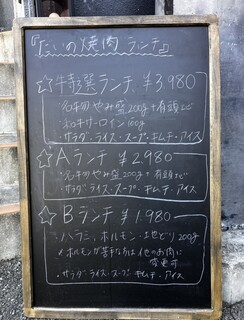 『たいの焼肉ランチ』
☆牛特選ランチ ¥3,980
・名物やみ盛200g+有頭エビ
・和牛サーロイン100g
・サラダ・ライス・スープ・キムチ・アイス
☆Aランチ ¥2980
・名物やみ盛200g+有頭エビ
・サラダ・ライス・スープ・キムチ・アイス
☆Bランチ ¥1,980
・ハラミ、ホルモン・せどり200g
ホルモンが苦手な方は他のお肉に
変更可
・サラダ・ライス・スープ・キムチ・アイス